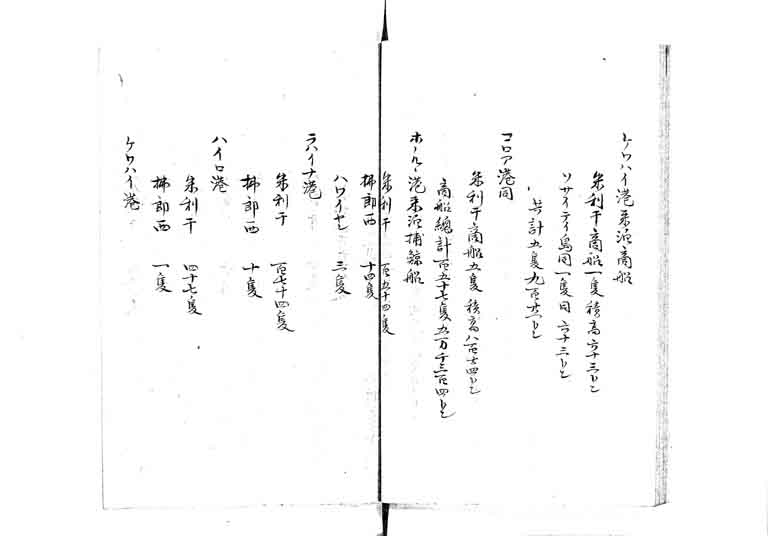 ケワハイ港来泊商船
米利干商船一隻積高六十三トン
ソサイティ島同一隻同六十三トン
共計五隻九百
コロア港同
米利干商船五隻積高八百七十四トン
商船總計百五十七隻五万千三百四トン
ホノルル港来泊捕鯨船
米利干 百五十四隻
拂郎西 十四隻
ハワイヤン 三隻
ラハイナ港
米利干 百七十四隻
拂郎西 十隻
ハイロ港
米利干 四十七隻
拂郎西 一隻
ケワハイ港